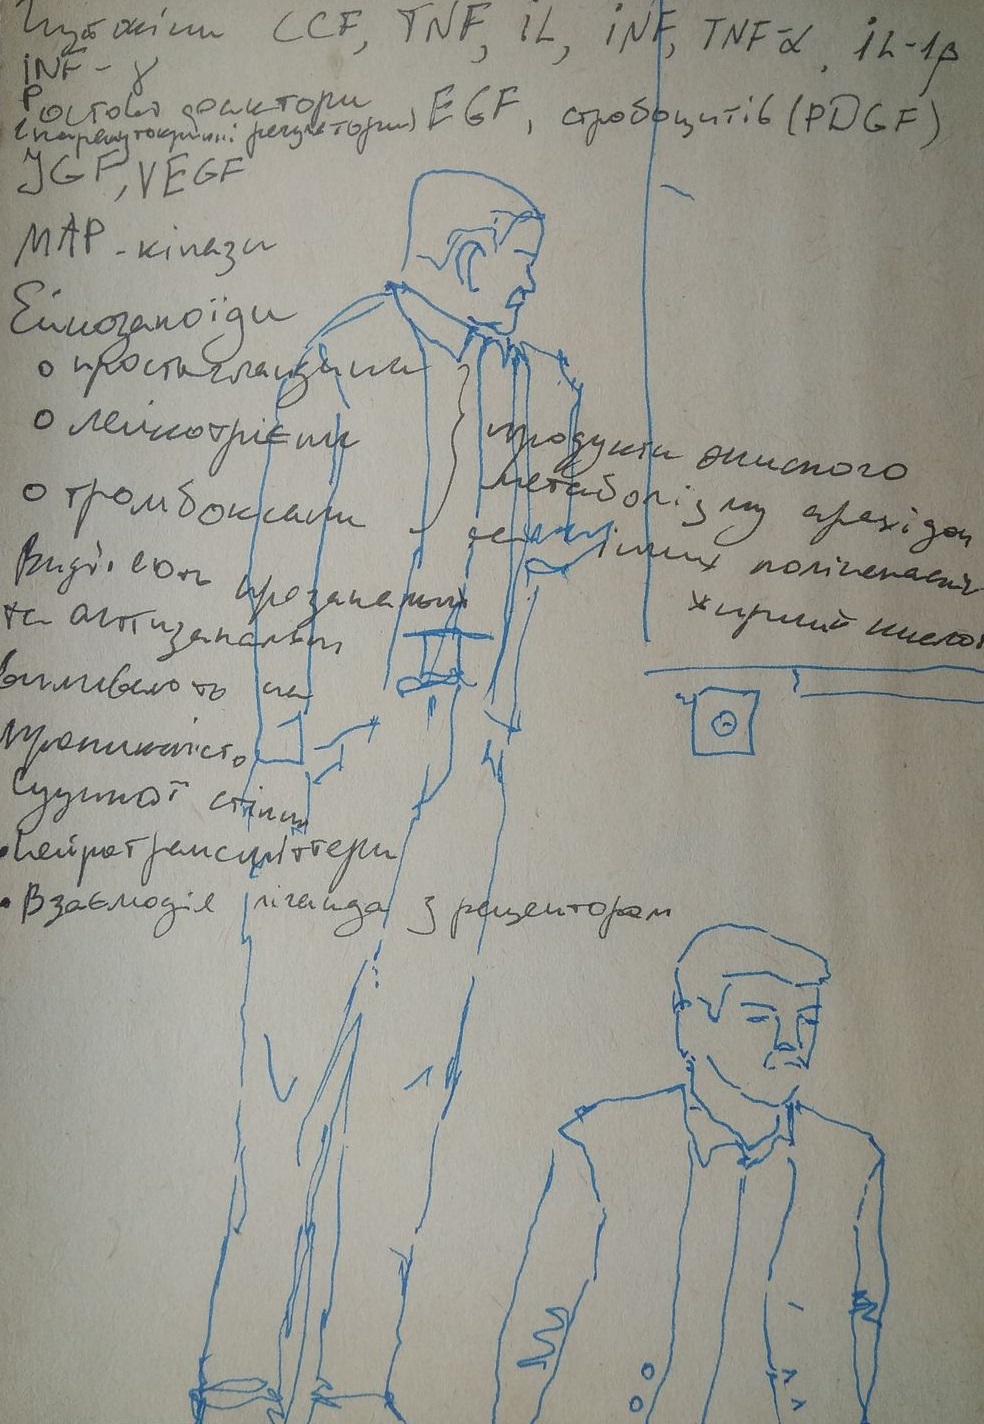 Цитокіни CCF, TNF, iL, iNF, TNF-α, iL-1β
iNF-γ
Ростові фактори EGF, тромбоцитів (PDGF)
регулятори)
JGF, VEGF
MAP-кінази
Ейкозаноїди
○ простагландини
○ лейкотрієни
○ тромбоксани
} продукти окисного
метаболізму арахідон
інших поліненасич
жирних кислот
Виділяють прозапальні
та антизапальні
впливають на
проникність
судинної стінки
•нейротрансміттери
•Взаємодія ліганда з рецептором